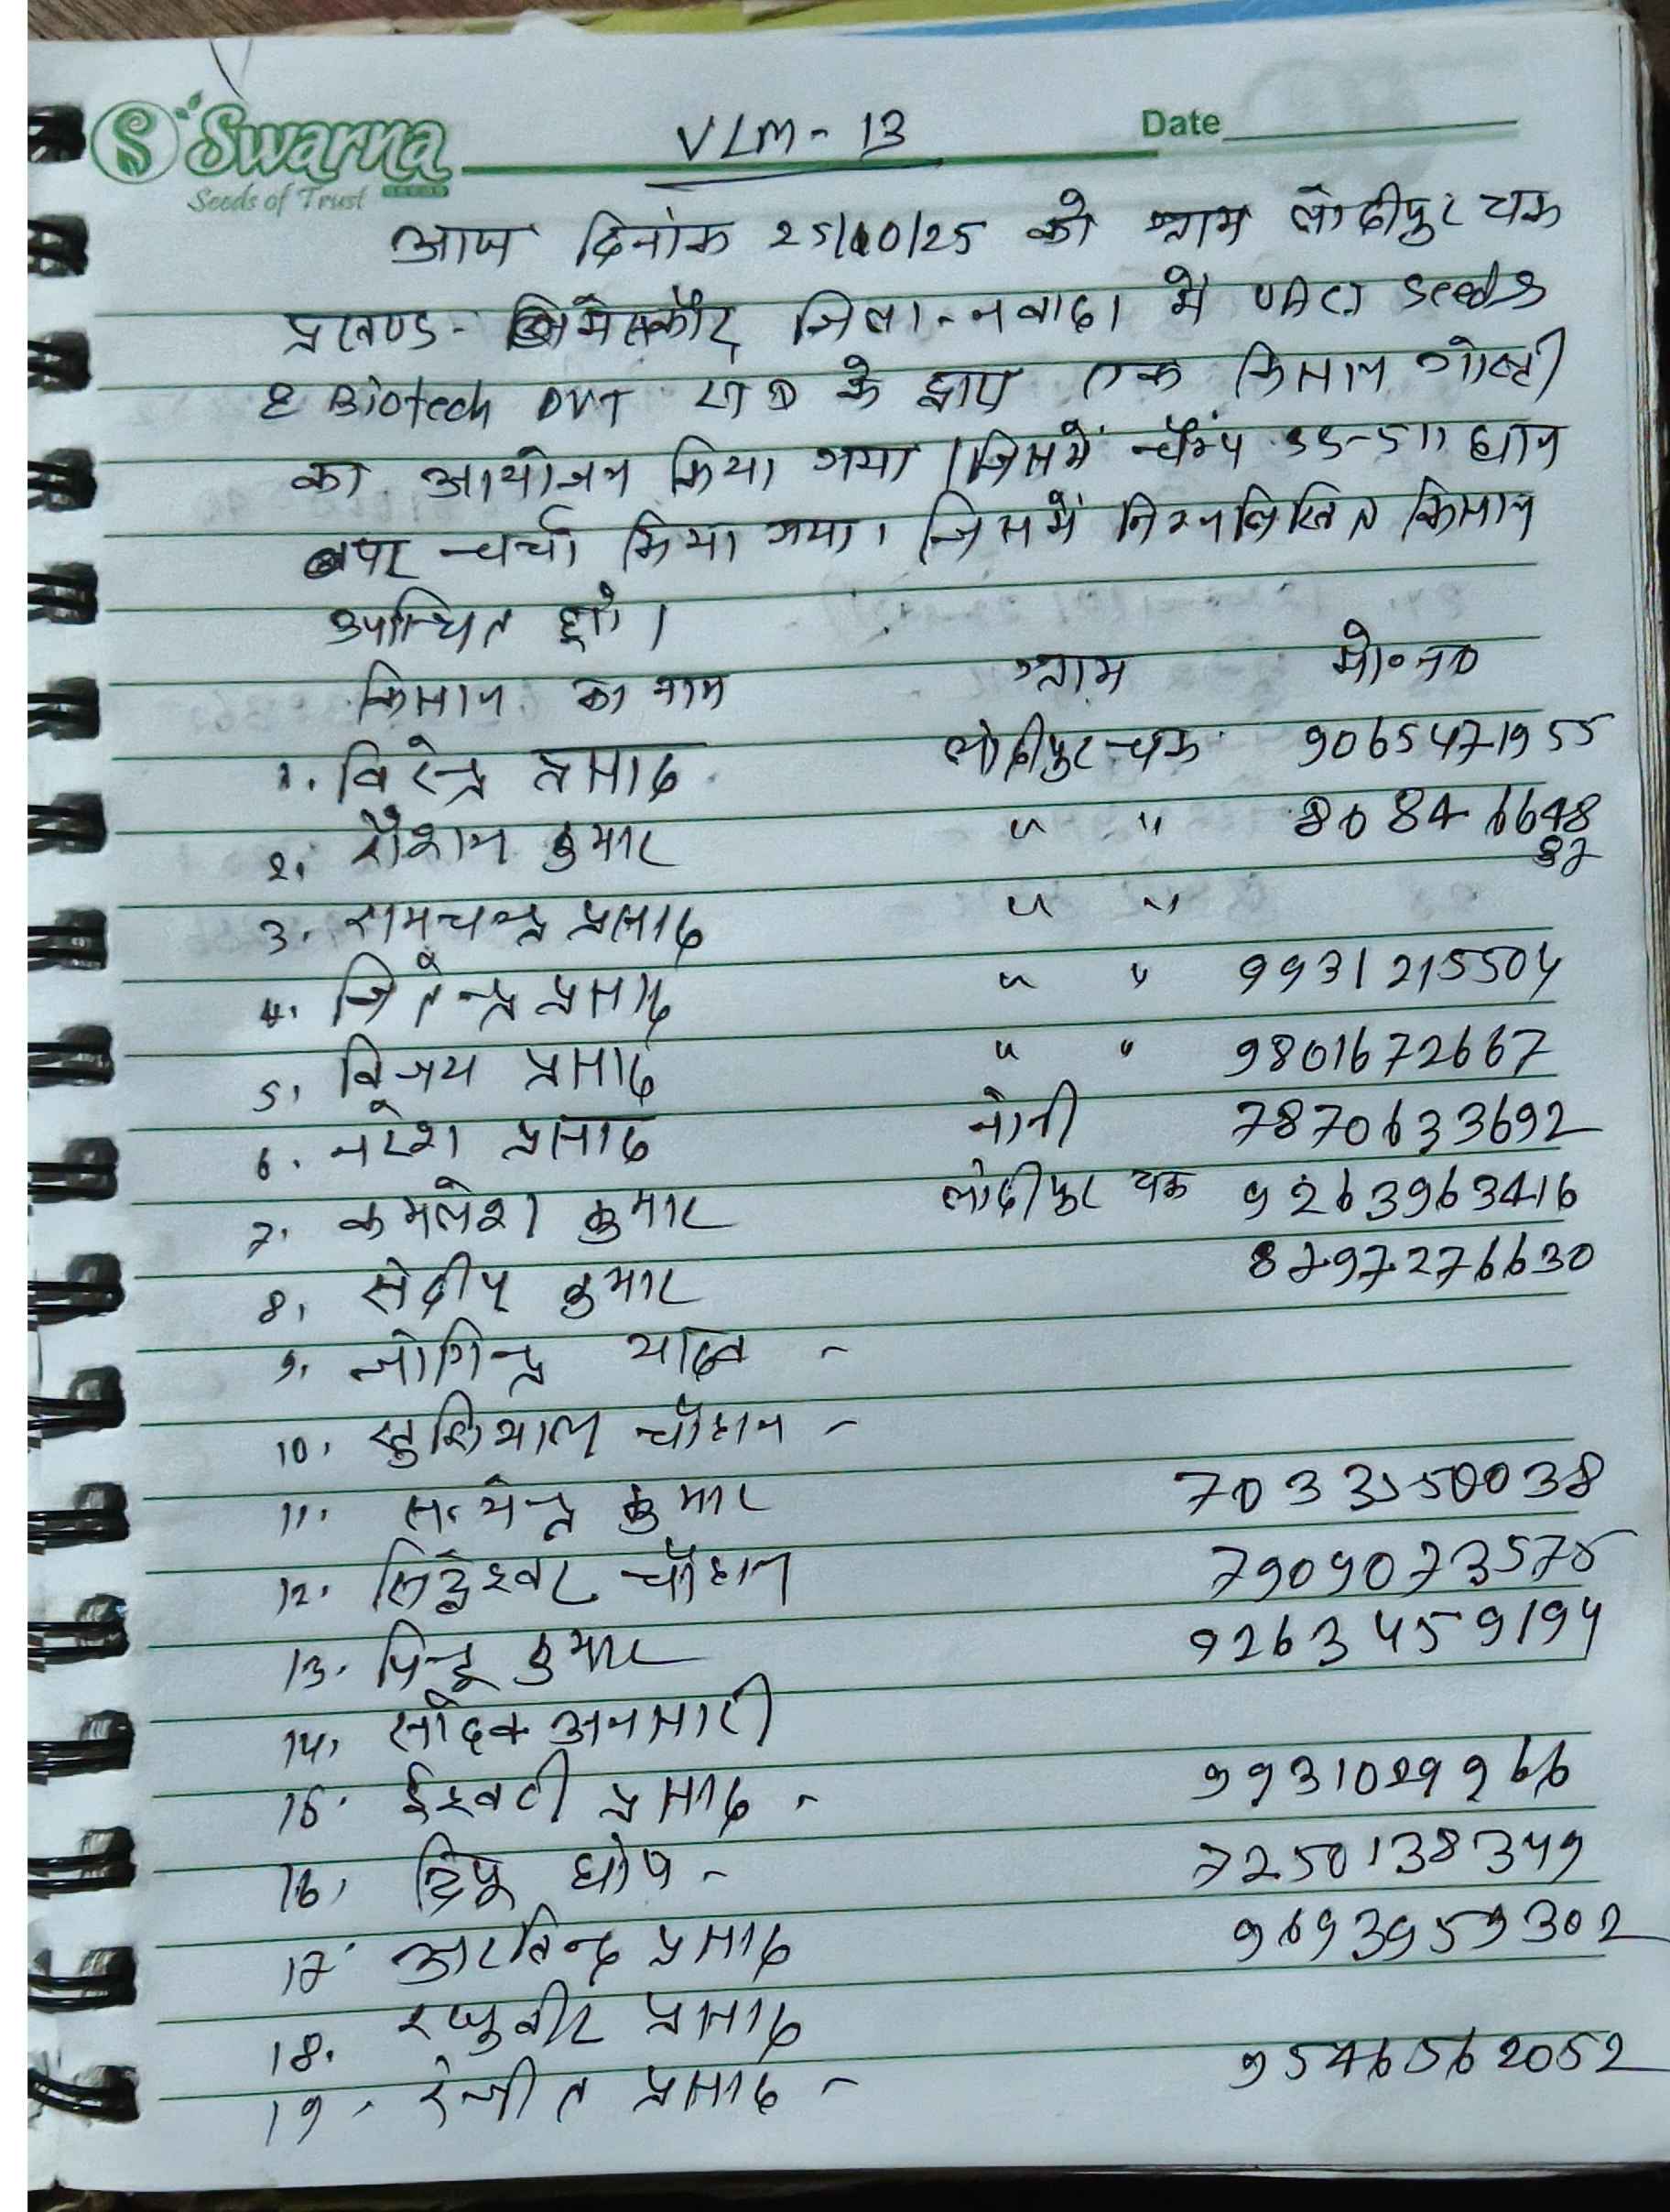 Swarna
Seeds of Trust
VLM - 13
Date
आज दिनांक 25/10/25 को ग्राम लोदीपुर चक
प्रखण्ड - मेसकौर जिला - नवादा में Seeds
& Biotech PVT LTD के द्वारा एक किसान गोष्ठी
का आयोजन किया गया । जिसमें चैम्प SS-511 धान
पर चर्चा किया गया । जिसमें निम्नलिखित किसान
उपस्थित हुये ।
किसान का नाम ग्राम मो० न०
1. विरेन्द्र प्रसाद लोदीपुर चक 9065471955
2. रौशन कुमार " " 8084 6648
87
3. रामचन्द्र प्रसाद " "
4. जितेन्द्र प्रसाद " " 9931215504
5. विजय प्रसाद " " 9801672667
6. नरेश प्रसाद नोनी 7870633692
7. कमलेश कुमार लोदीपुर चक 9263963416
8. संदीप कुमार 8797276630
9. जोगिन्द्र यादव -
10. खुशियाल चौहान -
11. सत्येन्द्र कुमार 7033550038
12. सिद्धेश्वर चौहान 7909073575
13. पिन्टू कुमार 9263459194
14. सादिक अनसारी
15. ईश्वरी प्रसाद - 9931029966
16. टिपू घोष - 7250138349
17. अरविन्द प्रसाद 9693959302
18. रघुवीर प्रसाद
19. रंजीत प्रसाद - 9546562052